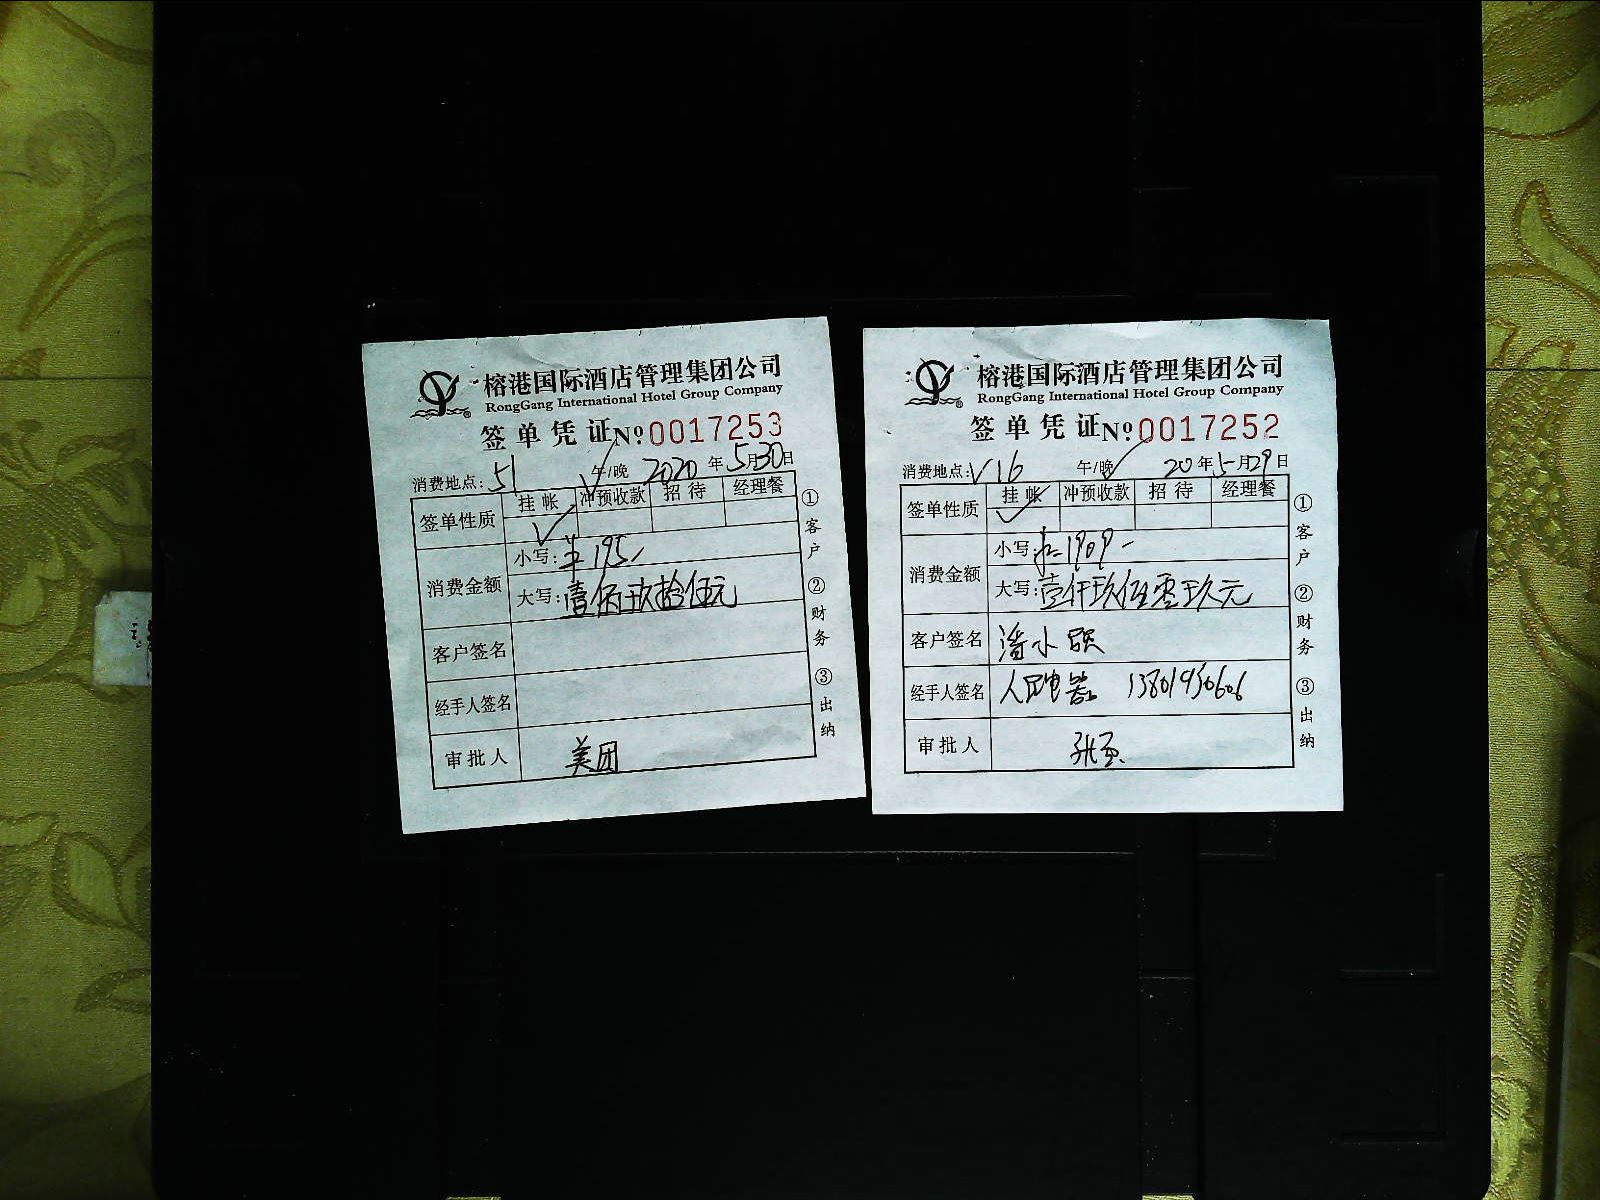 榕港国际酒店管理集团公司
RongGang International Hotel Group Company
签单凭证№0017253
消费地点: 51 午/晚 2020年5月30日
签单性质 挂帐 冲预收款 招待 经理餐
消费金额
小写: 195
大写: 壹佰玖拾伍元
客户签名
经手人签名
审批人 美团
①客户 ②财务 ③出纳
榕港国际酒店管理集团公司
RongGang International Hotel Group Company
签单凭证№0017252
消费地点: V16 午/晚 20年5月29日
签单性质 挂帐 冲预收款 招待 经理餐
消费金额
小写: 1909
大写: 壹仟玖佰零玖元
客户签名 潘水
经手人签名 人民电器 13801930606
审批人
①客户 ②财务 ③出纳